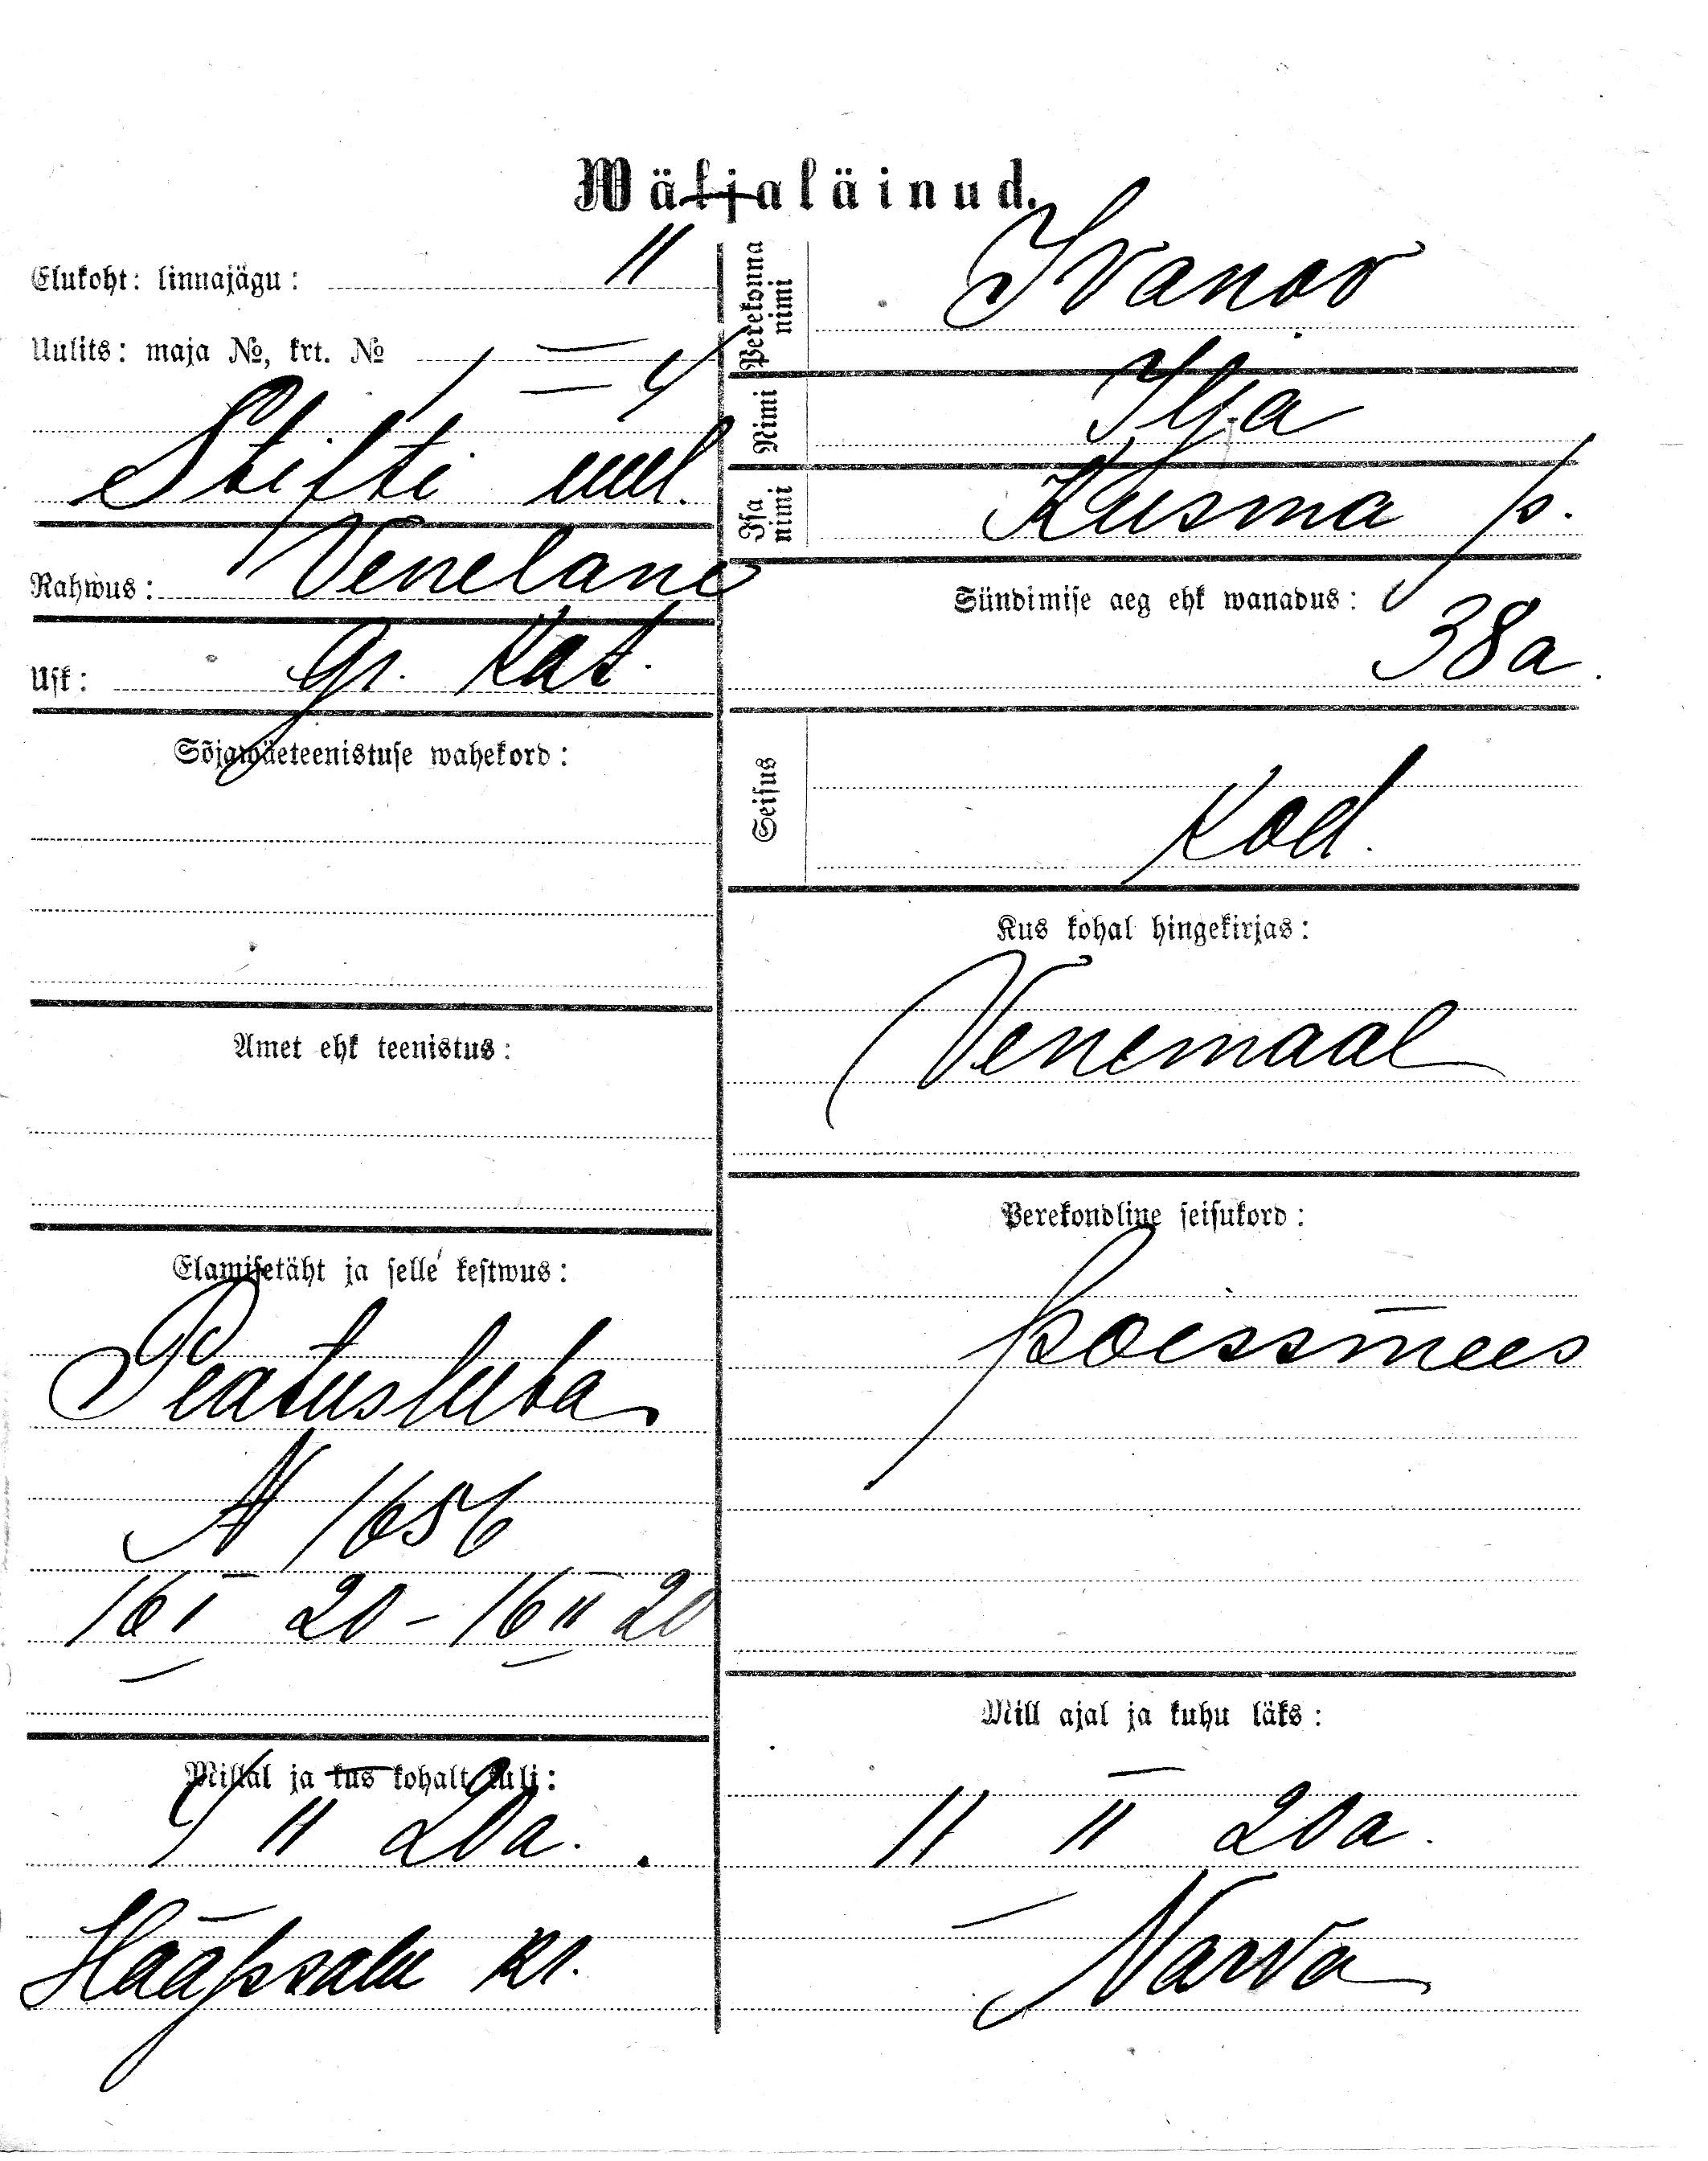 Wäljaläinud.
Elukoht: linnajägu: II
Uulits: maja №, krt. № 1 – 4
Stifti uul.
Rahwus: Venelane
Usk: Gr. Kat.
Sõjawäeteenistuse wahekord:
Amet ehk teenistus:
Elamisetäht ja selle kestwus:
Peatusluba
N 1656
16 I 20 – 16 II 20
Millal ja kus kohalt tuli:
9 II 20 a.
Haapsalu kr.
Perekonna nimi Ivanov
Nimi Ilja
Isa nimi Kusma p.
Sündimise aeg ehk wanadus:
38 a.
Seisus
Kod.
Kus kohal hingekirjas:
Venemaal
Perekondline seisukord:
poissmees
Mill ajal ja kuhu läks:
11 II 20 a.
Narva